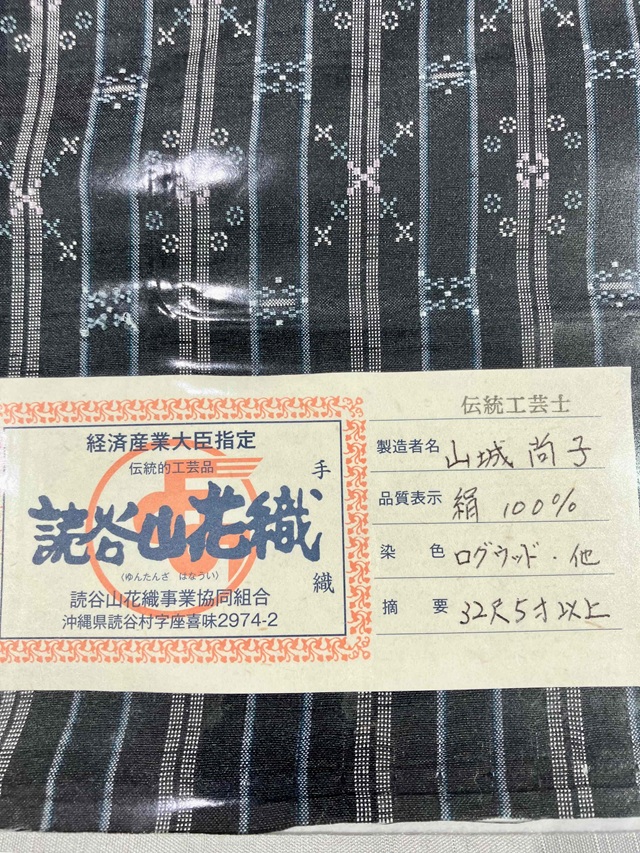 経済産業大臣指定
伝統的工芸品
読谷山花織
手織
(ゆんたんざ はなうい)
読谷山花織事業協同組合
沖縄県読谷村字座喜味2974-2
伝統工芸士
製造者名 山城 尚子
品質表示 絹 100%
染色 ログウッド・他
摘要 32尺5寸以上